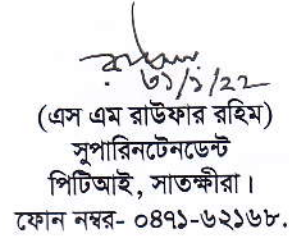 ৩১/১/২২
(এস এম রাউফার রহিম)
সুপারিনটেনডেন্ট
পিটিআই, সাতক্ষীরা।
ফোন নম্বর- ০৪৭১-৬২১৬৮.